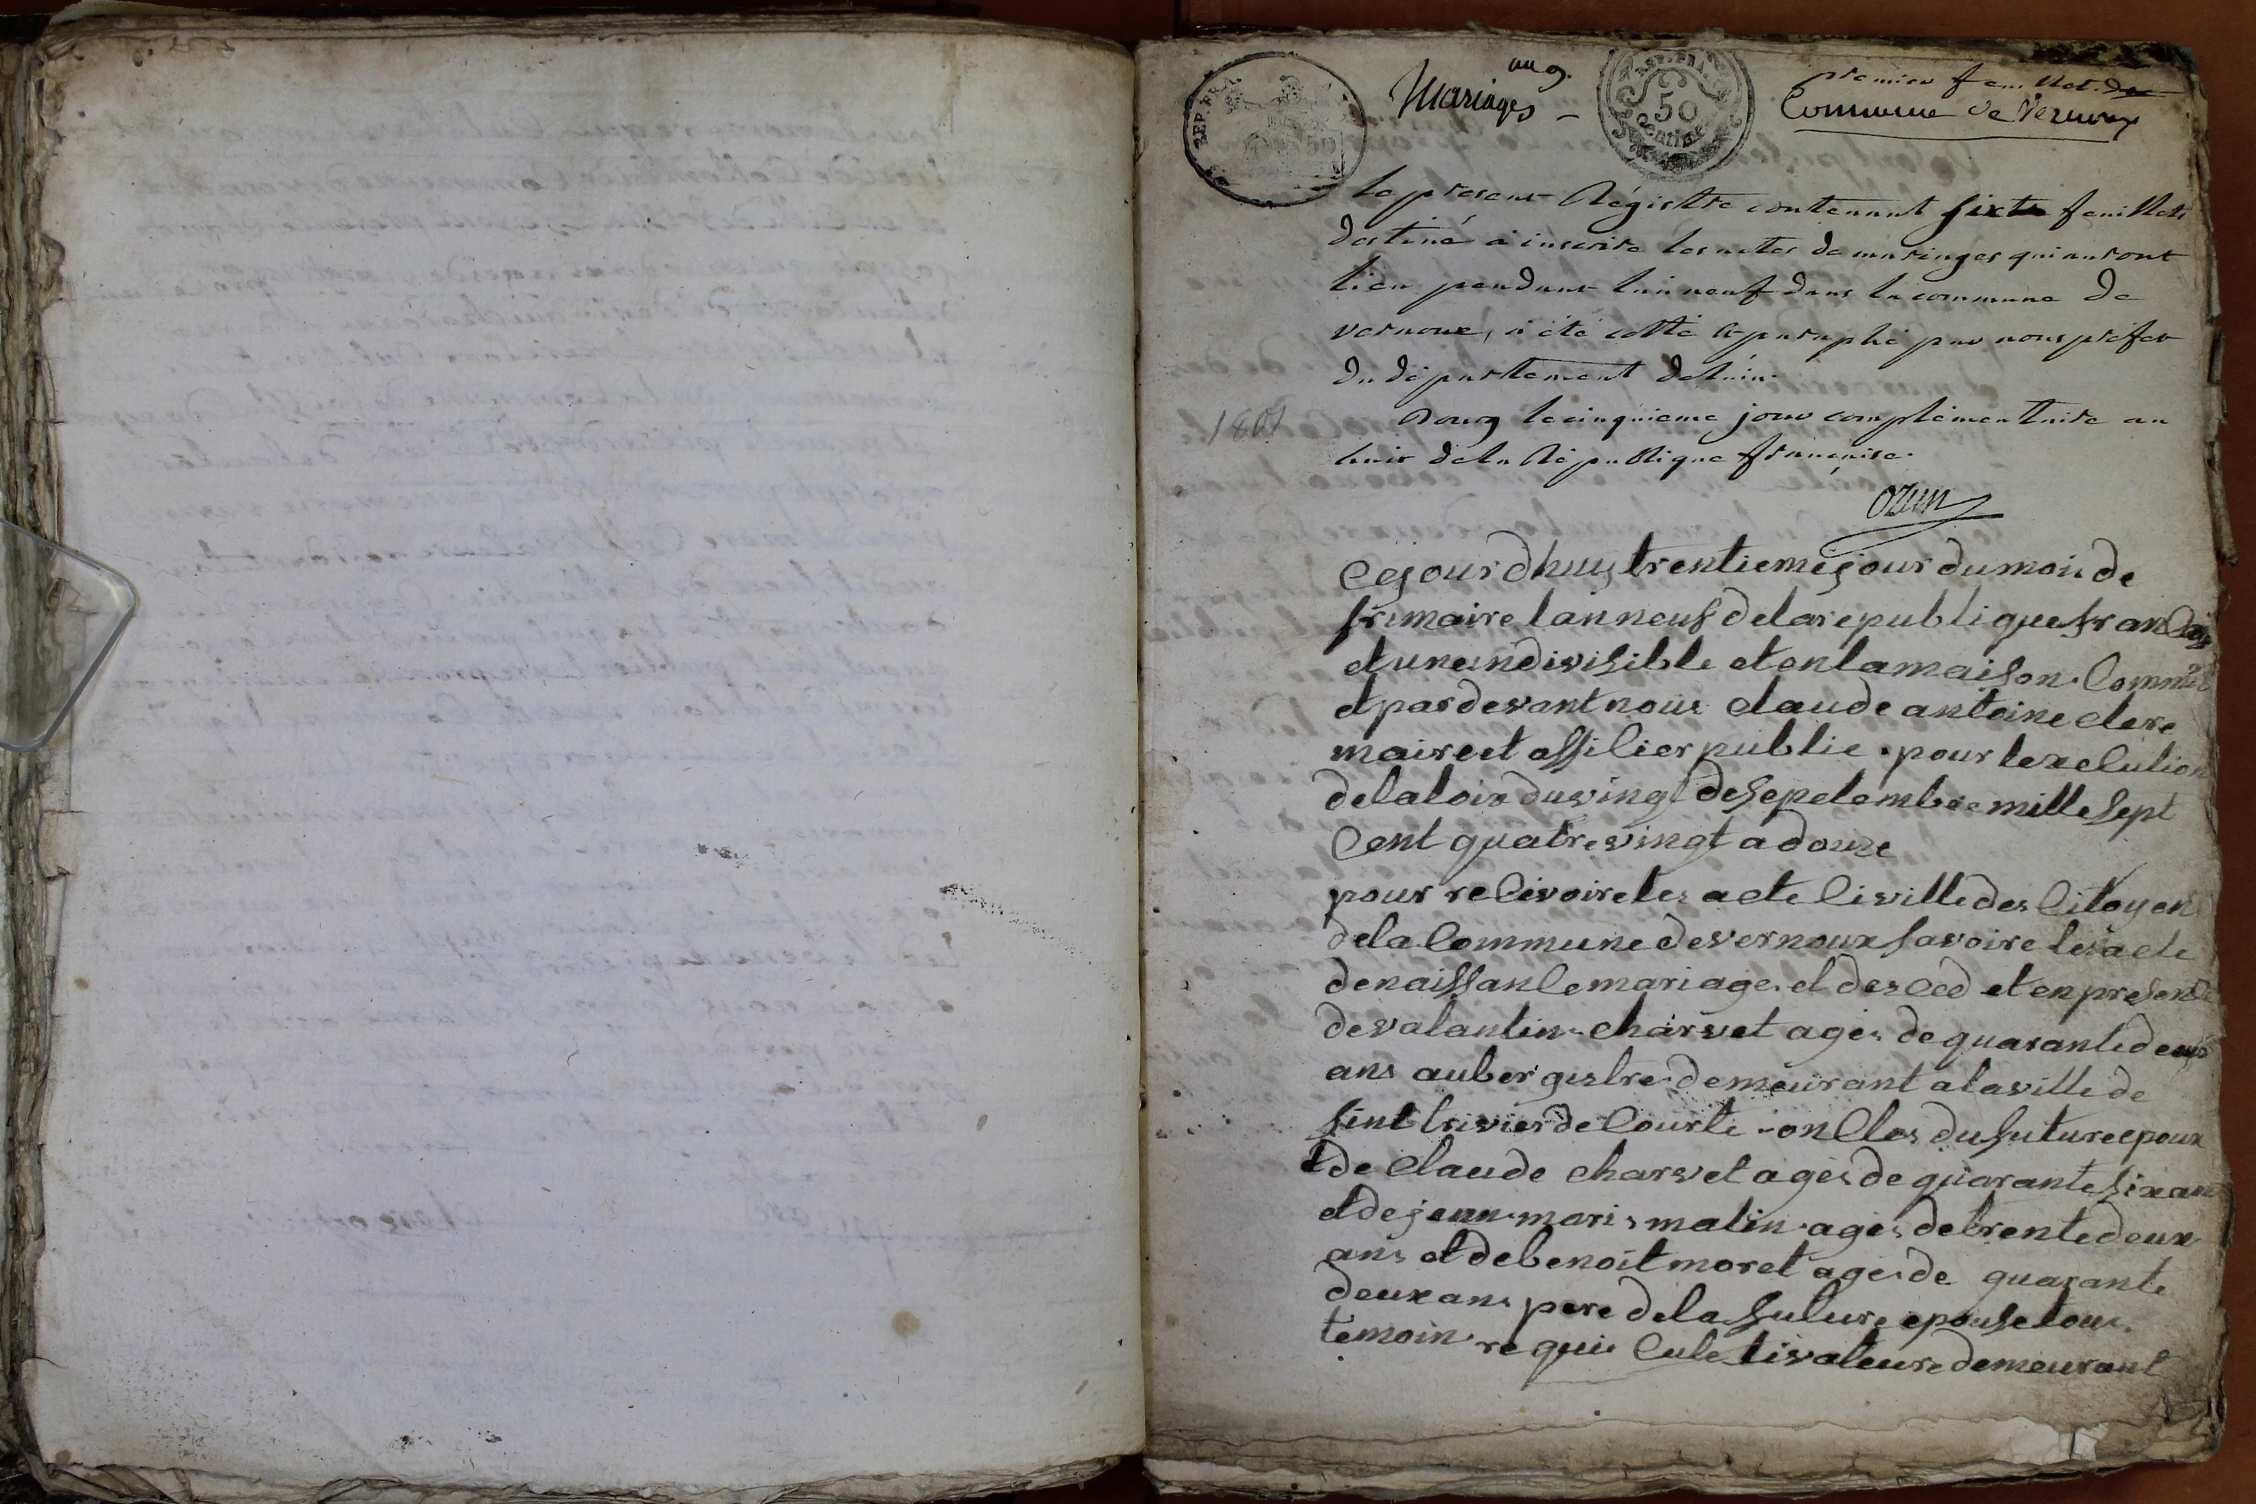 an 9.
Mariages
REP. FRA.
REP. FRA.
50
Centimes
premier feuillet. De
Commune de Vernoux
le present Régistre contenant sixte feuillets
destiné à inscrire les actes de mariages qui auront
lieu pendant l'an neuf dans la commune de
vernoux, a été cotté & paraphé par nous préfet
du département de l'ain.
1801
Bourg le cinquieme jour complémentaire an
huit de la République française.
Ozun
Cejourdhuy trentieme jour du mois de
frimaire lan neuf de la republique francais
et une indivisible et en la maison. Commune
et pardevant nous claude antoine clere
maire et officier public. pour lexecution
de la loix du vingt de septembre mille sept
Cent quatre vingt a douze
pour recivoire les acte Civille des Citoyens
de la Commune de vernoux savoire les acte
de naissance mariage et desced et en presence
de valantin charvet ages de quarante deux
ans aubergistre demeurant a la ville de
sint trivier de Courte oncles du future epoux
et de Claude charvet ages de quarante six ans
et de jean maris matin ages de trente deux
ans et de benoit moret ages de quarante
deux ans pere de la future epouse tous
temoin requis Culetivateure demeurant